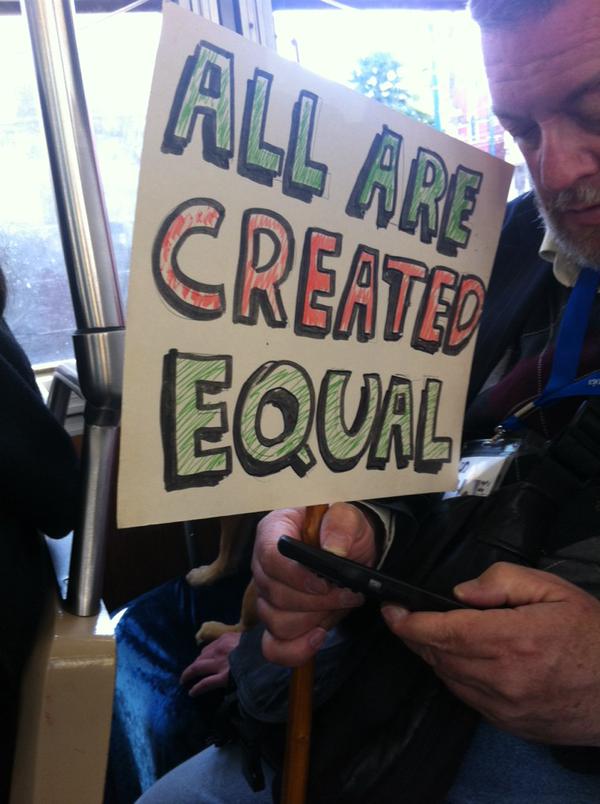 ALL ARE
CREATED
EQUAL